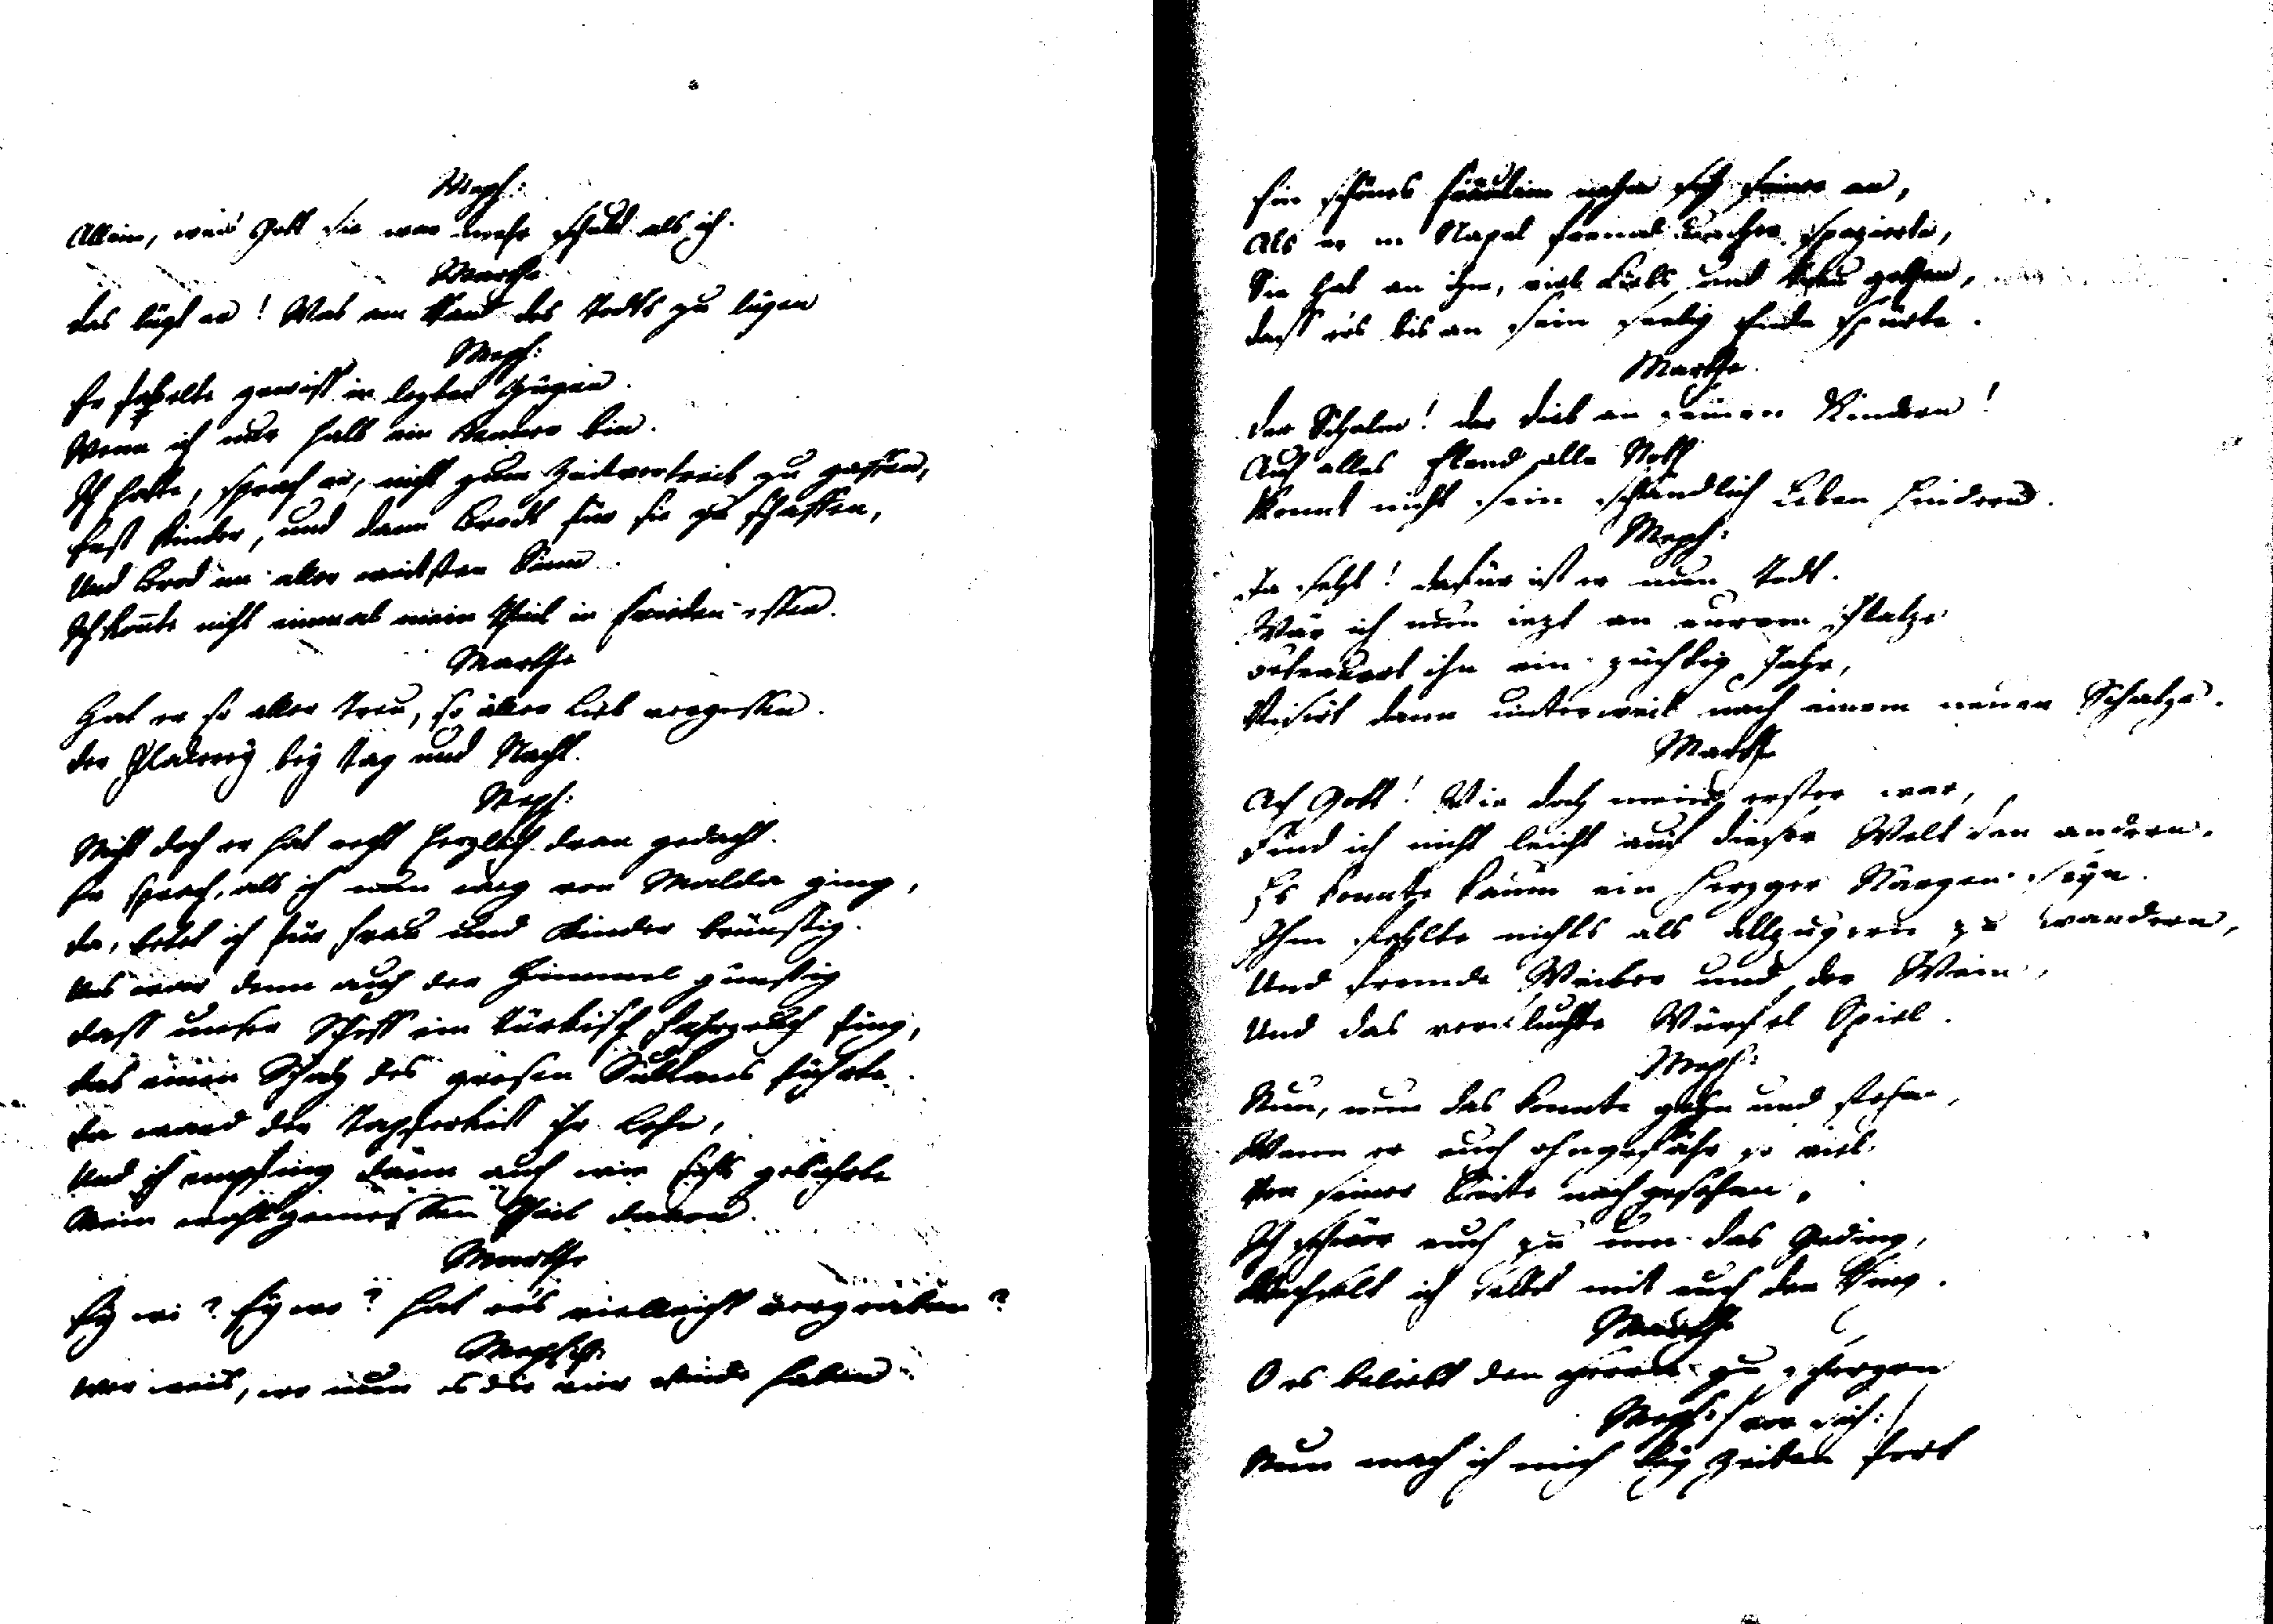 Meph:
Allein, weis Gott sie war mehr schuld als ich.
Marthe
das lügt er! Was am Rand des Todts zu lügen
Meph:
Er fabelte gewiss in lezten Zügen.
Wenn ich nur halb ein Kenner bin.
Ich hatte, sprach er, nicht zum Zeitvertreib zu gaffen,
Erst Kinder, und dann Brodt für sie zu schaffen,
Und Brod im aller weitsten Sinn.
Ich konnte nicht einmal mein Theil in Frieden essen.
Marthe
Hat er so aller Treu, so aller Lieb vergessen.
der Plackerey bey Tag und Nacht.
Meph:
Nicht doch er hat recht herzlich dran gedacht.
Er sprach, als ich nun weg von Malta ging,
da, betet ich für Frau und Kinder brünstig.
Uns war denn auch der Himmel günstig
dass unser Schiff ein türkisch Fahrzeuch fing,
das einen Schatz des grosen Sultans führte.
da ward der Tapferkeit ihr Lohn,
Und ich empfing dann auch wie sichs gebührte
Mein wohlgemessen Theil davon.
Marthe
Ey wi? Ey wo? hat ers vielleicht vergraben?
Mephist:
Wer weis, wo nun es die vier Winde haben.
Ein schönes Fräulein nahm sich seiner an,
Als er in Napel fremd umher spazierte,
Sie hat an ihm, viel Liebs und Treus gethan,
dass ers bis an sein seelig Ende spürte.
Marthe.
der Schelm! der Dieb an seinen Kindern!
Auch alles Elend alle Noth
Konnt nicht sein schändlich Leben hindern.
Meph:
Ja seht! dafür ist er nun Todt.
Wär ich nun iezt an eurem Platze
betrauert ihn ein züchtig Jahr,
Visirt dann unterweil nach einem neuen Schatze.
Marthe
Ach Gott! Wie doch mein erster war,
Find ich nicht leicht auf dieser Welt den andern.
Es konnte kaum ein herzger Närrgen seyn.
Ihm fehlte nichts als allzugern zu wandern,
Und fremde Weiber und der Wein,
Und das verfluchte Würfel Spiel.
Meph:
Nun, nun das konnte gehn und stehen,
Wenn er euch ohngefähr so viel
Von seiner Seite nachgesehen.
Ich schwör euch zu um das Geding,
Wechselt ich selbst mit euch den Ring.
Marthe
O es beliebt dem Herren zu scherzen
Meph: / vor sich: /
Nun mach ich mich bey Zeiten fort